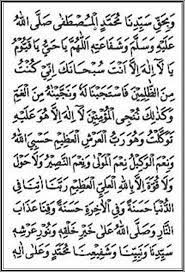 وَبِحَقِّ سَيِّدِنَا مُحَمَّدٍ الْمُصْطَفٰى صَلَّى اللّٰهُ
عَلَيْهِ وَسَلَّمَ وَشَفَاعَتِهِ اَللّٰهُمَّ يَا حَيُّ يَا قَيُّوْمُ
يَا لَا اِلٰهَ اِلَّا اَنْتَ سُبْحَانَكَ اِنِّيْ كُنْتُ
مِنَ الظّٰلِمِيْنَ فَاسْتَجَبْنَا لَهُ وَنَجَّيْنٰهُ مِنَ الْغَمِّ
وَكَذٰلِكَ نُنْجِي الْمُؤْمِنِيْنَ لَا اِلٰهَ اِلَّا هُوَ عَلَيْهِ
تَوَكَّلْتُ وَهُوَ رَبُّ الْعَرْشِ الْعَظِيْمِ حَسْبِيَ اللّٰهُ
وَنِعْمَ الْوَكِيْلُ نِعْمَ الْمَوْلٰى وَنِعْمَ النَّصِيْرُ وَلَا حَوْلَ
وَلَا قُوَّةَ اِلَّا بِاللّٰهِ الْعَلِيِّ الْعَظِيْمِ رَبَّنَا اٰتِنَا فِي
الدُّنْيَا حَسَنَةً وَفِي الْاٰخِرَةِ حَسَنَةً وَقِنَا عَذَابَ
النَّارِ وَصَلَّى اللّٰهُ عَلٰى خَيْرِ خَلْقِهِ وَنُوْرِ عَرْشِهِ
سَيِّدِنَا وَنَبِيِّنَا وَشَفِيْعِنَا مُحَمَّدٍ وَعَلٰى اٰلِهِ